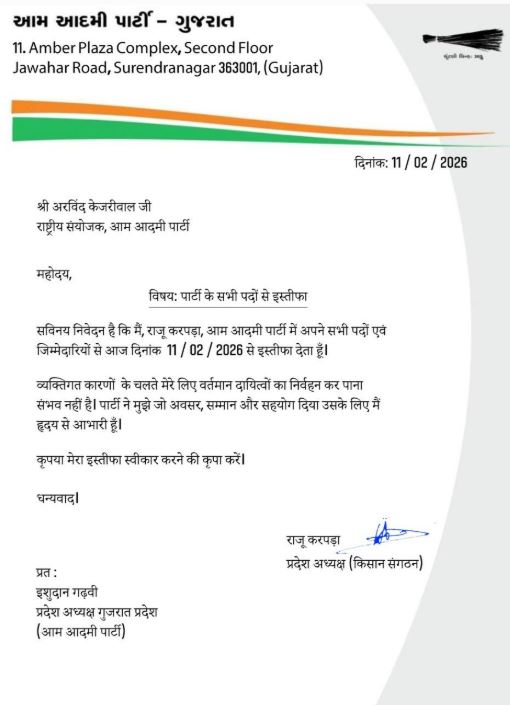 આમ આદમી પાર્ટી – ગુજરાત
11. Amber Plaza Complex, Second Floor
Jawahar Road, Surendranagar 363001, (Gujarat)
ચૂંટણી ચિન્હ: ઝાડુ
दिनांक: 11 / 02 / 2026
श्री अरविंद केजरीवाल जी
राष्ट्रीय संयोजक, आम आदमी पार्टी
महोदय,
विषय: पार्टी के सभी पदों से इस्तीफा
सविनय निवेदन है कि मैं, राजू करपड़ा, आम आदमी पार्टी में अपने सभी पदों एवं
जिम्मेदारियों से आज दिनांक 11 / 02 / 2026 से इस्तीफा देता हूँ।
व्यक्तिगत कारणों के चलते मेरे लिए वर्तमान दायित्वों का निर्वहन कर पाना
संभव नहीं है। पार्टी ने मुझे जो अवसर, सम्मान और सहयोग दिया उसके लिए मैं
हृदय से आभारी हूँ।
कृपया मेरा इस्तीफा स्वीकार करने की कृपा करें।
धन्यवाद।
राजू करपड़ा
प्रदेश अध्यक्ष (किसान संगठन)
प्रत :
इशुदान गढ़वी
प्रदेश अध्यक्ष गुजरात प्रदेश
(आम आदमी पार्टी)